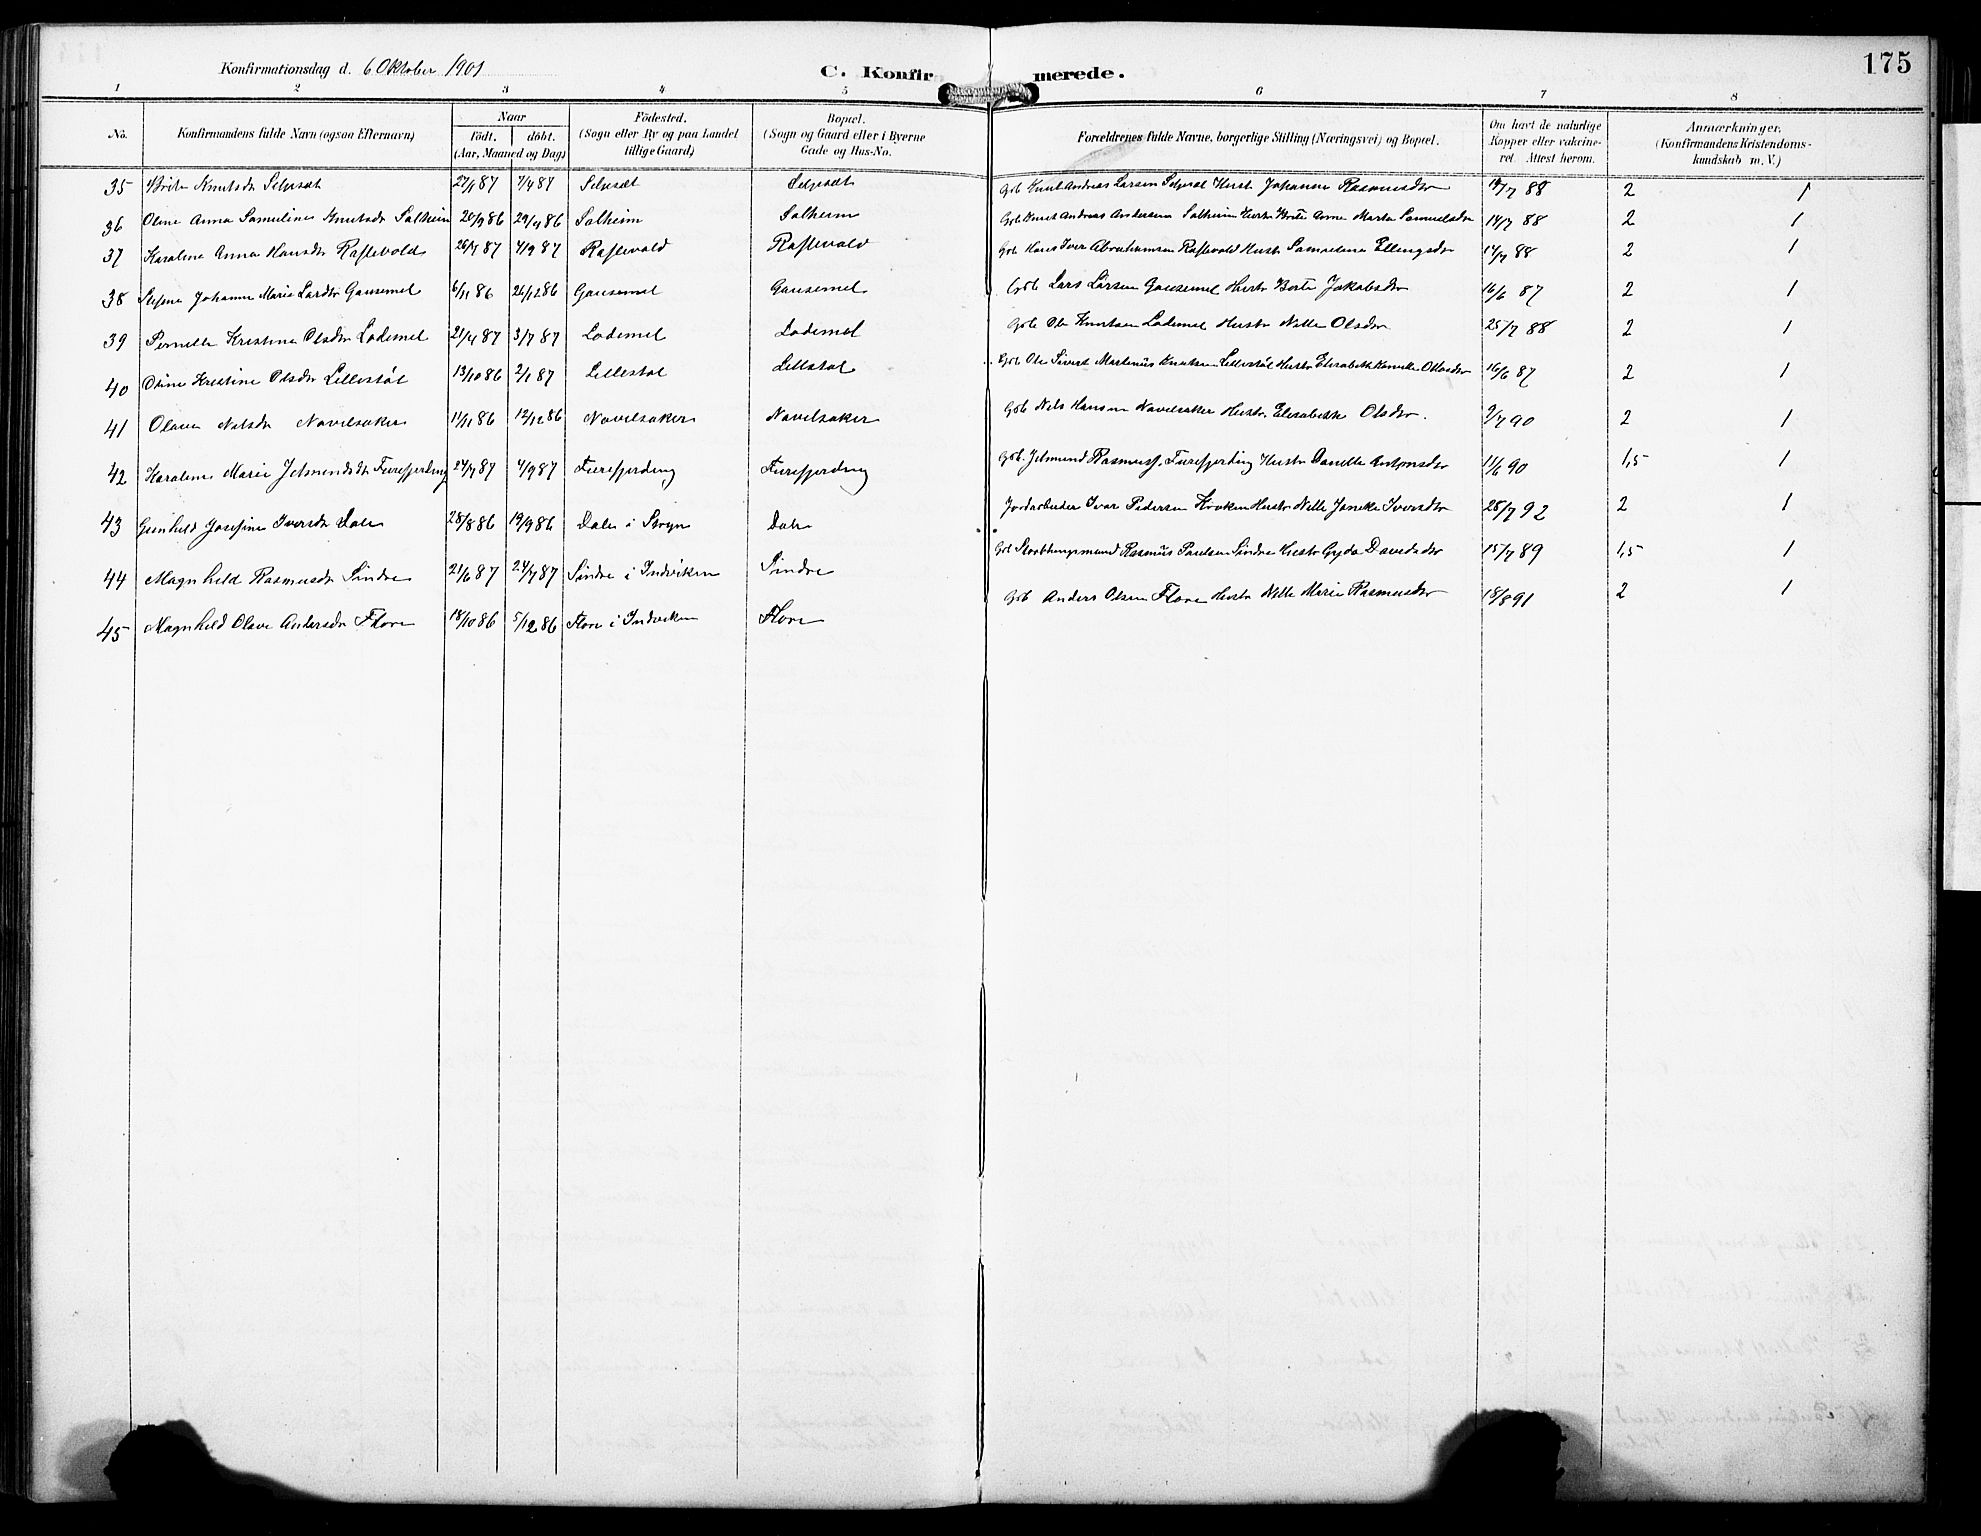 175
Konfirmationsdag d. 6 Oktober 1901
C. Konfirmerede.
1 2 3 4 5 6 7 8
No. Konfirmandens fulde Navn (ogsaa Efternavn) Naar født. døbt. (Aar, Maaned og Dag) Fødested. (Sogn eller By og paa Landet tillige Gaard) Bopæl. (Sogn og Gaard eller i Byerne Gade og Hus-No. Forældrenes fulde Navne, borgerlige Stilling (Næringsvei) og Bopæl. Om havt de naturlige Kopper eller vakcineret. Attest herom. Anmærkninger, (Konfirmandens Kristendomskundskab m. V.)
35 Brite Knutsdr Seljesæt 27/1 87 7/4 87 Seljesæt Seljesæt Gbb Knut Andreas Larsen Seljesæt Hust Johanne Rasmusdr 88 2 1
36 Oline Anna Samuline Knutsdr Solheim 20/9 86 29/9 86 Solheim Solheim Gbb Knut Andreas Andersen Solheim Hustr Brite Anne Marta Samuelsdr 14/7 88 2 1
37 Karoline Anna Hansdr Raftevold 26/7 87 4/9 87 Raftevold Raftevold Gbb Hans Iver Abrahamsen Raftevold Hustr Samueline Ellingsdr 14/7 88 2 1
38 Johanne Marie Larsdtr Gausemel 6/11 86 26/12 86 Gausemel Gausemel Gbb Lars Larsen Gausemel Hustr Berte Jakobsdr 16/6 87 2 1
39 Pernille Kristine Olsdr Lødemel 21/4 87 3/7 87 Lødemel Lødemel Gbb Ole Knutsen Lødemel Hustr Nille Olsdr 25/7 88 2 1
40 Oline Kristine Olsdr Lillestøl 13/10 86 2/1 87 Lillestøl Lillestøl Gbb Ole Sivert Martinus Knutsen Lillestøl Hustr Elisabeth 16/6 87 2 1
41 Olave Nilsdr Navelsaker 11/11 86 12/12 86 Navelsaker Navelsaker Gbb Nils Hansen Navelsaker Hustr. Elisabeth Olsdr. 2/7 90 2 1
42 Karoline Marie Jetmundsdr Furefjerding 24/7 87 4/9 87 Furefjerding Furefjerding Gbb. Jetmund Rasmuss. Furefjerding Hustr Danielle Antonsdr 11/6 90 1,5 1
43 Gunhild Josefine Iversdr Dale 28/8 86 19/9 86 Dale i Stryn Dale Jordarbeider Ivar Pedersen Kroken Hustr Nille Janike Iversdr 28/7 92 2 1
44 Magnhild Rasmusdr Sindre 21/6 87 24/7 87 Sindre i Indviken Sindre Gbb Storthingsmand Rasmus Paulsen Sindre Hustr Gyda Davidsdr 15/7 89 1,5 1
45 Magnhild Olave Andersdr Flore 18/10 86 5/12 86 Flore i Indviken Flore Gbb Anders Olsen Flore Hustr Nille Marie Rasmusdr 18/8 91 2 1